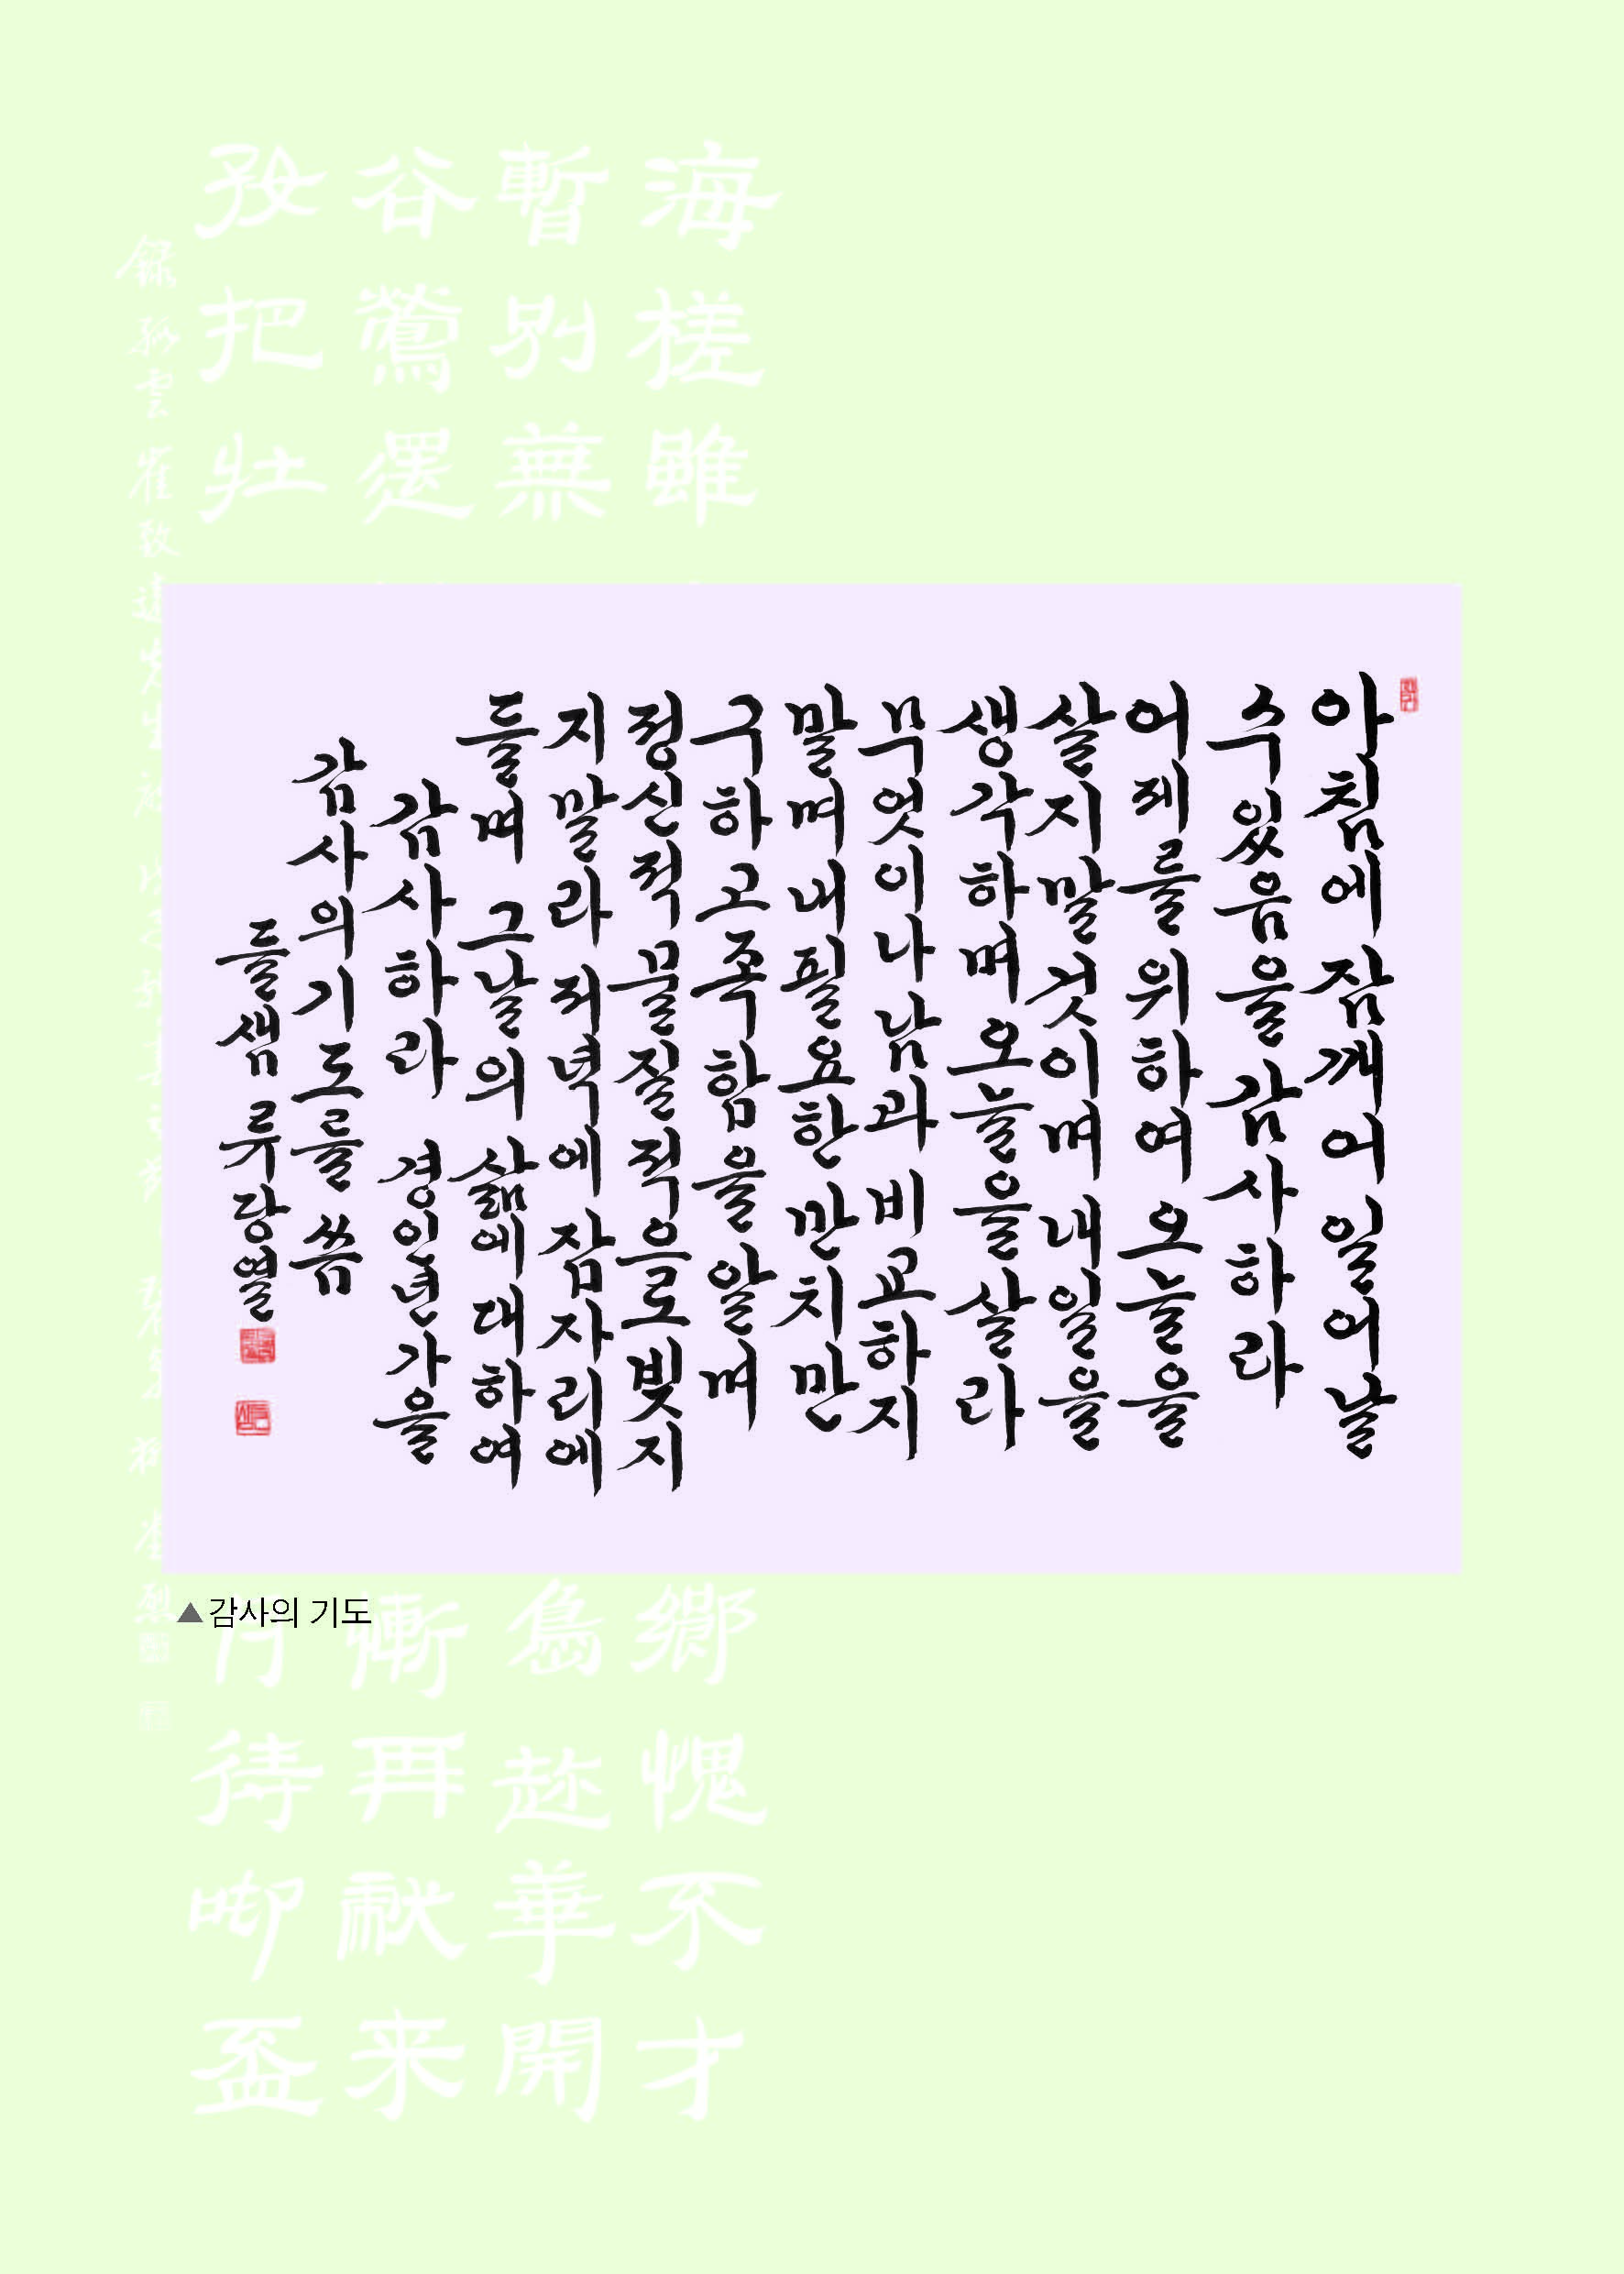 아침에 잠깨어 일어날
수 있음을 감사하라
어제를 위하여 오늘을
살지말것이며 내일을
생각하며 오늘을 살라
무엇이나 남과 비교하지
말며 내 필요한 만치만
구하고 족함을 알며
정신적 물질적으로 빚지
지말라 저녁에 잠자리에
들며 그날의 삶에 대하여
감사하라 경인년 가을
감사의 기도를 씀
들샘 류당열
▲감사의 기도
海槎雖
暫別蕪
谷鶯還
孜把壯
鄕愧不才
嶌趂華開
慚再獻来
待啣盃